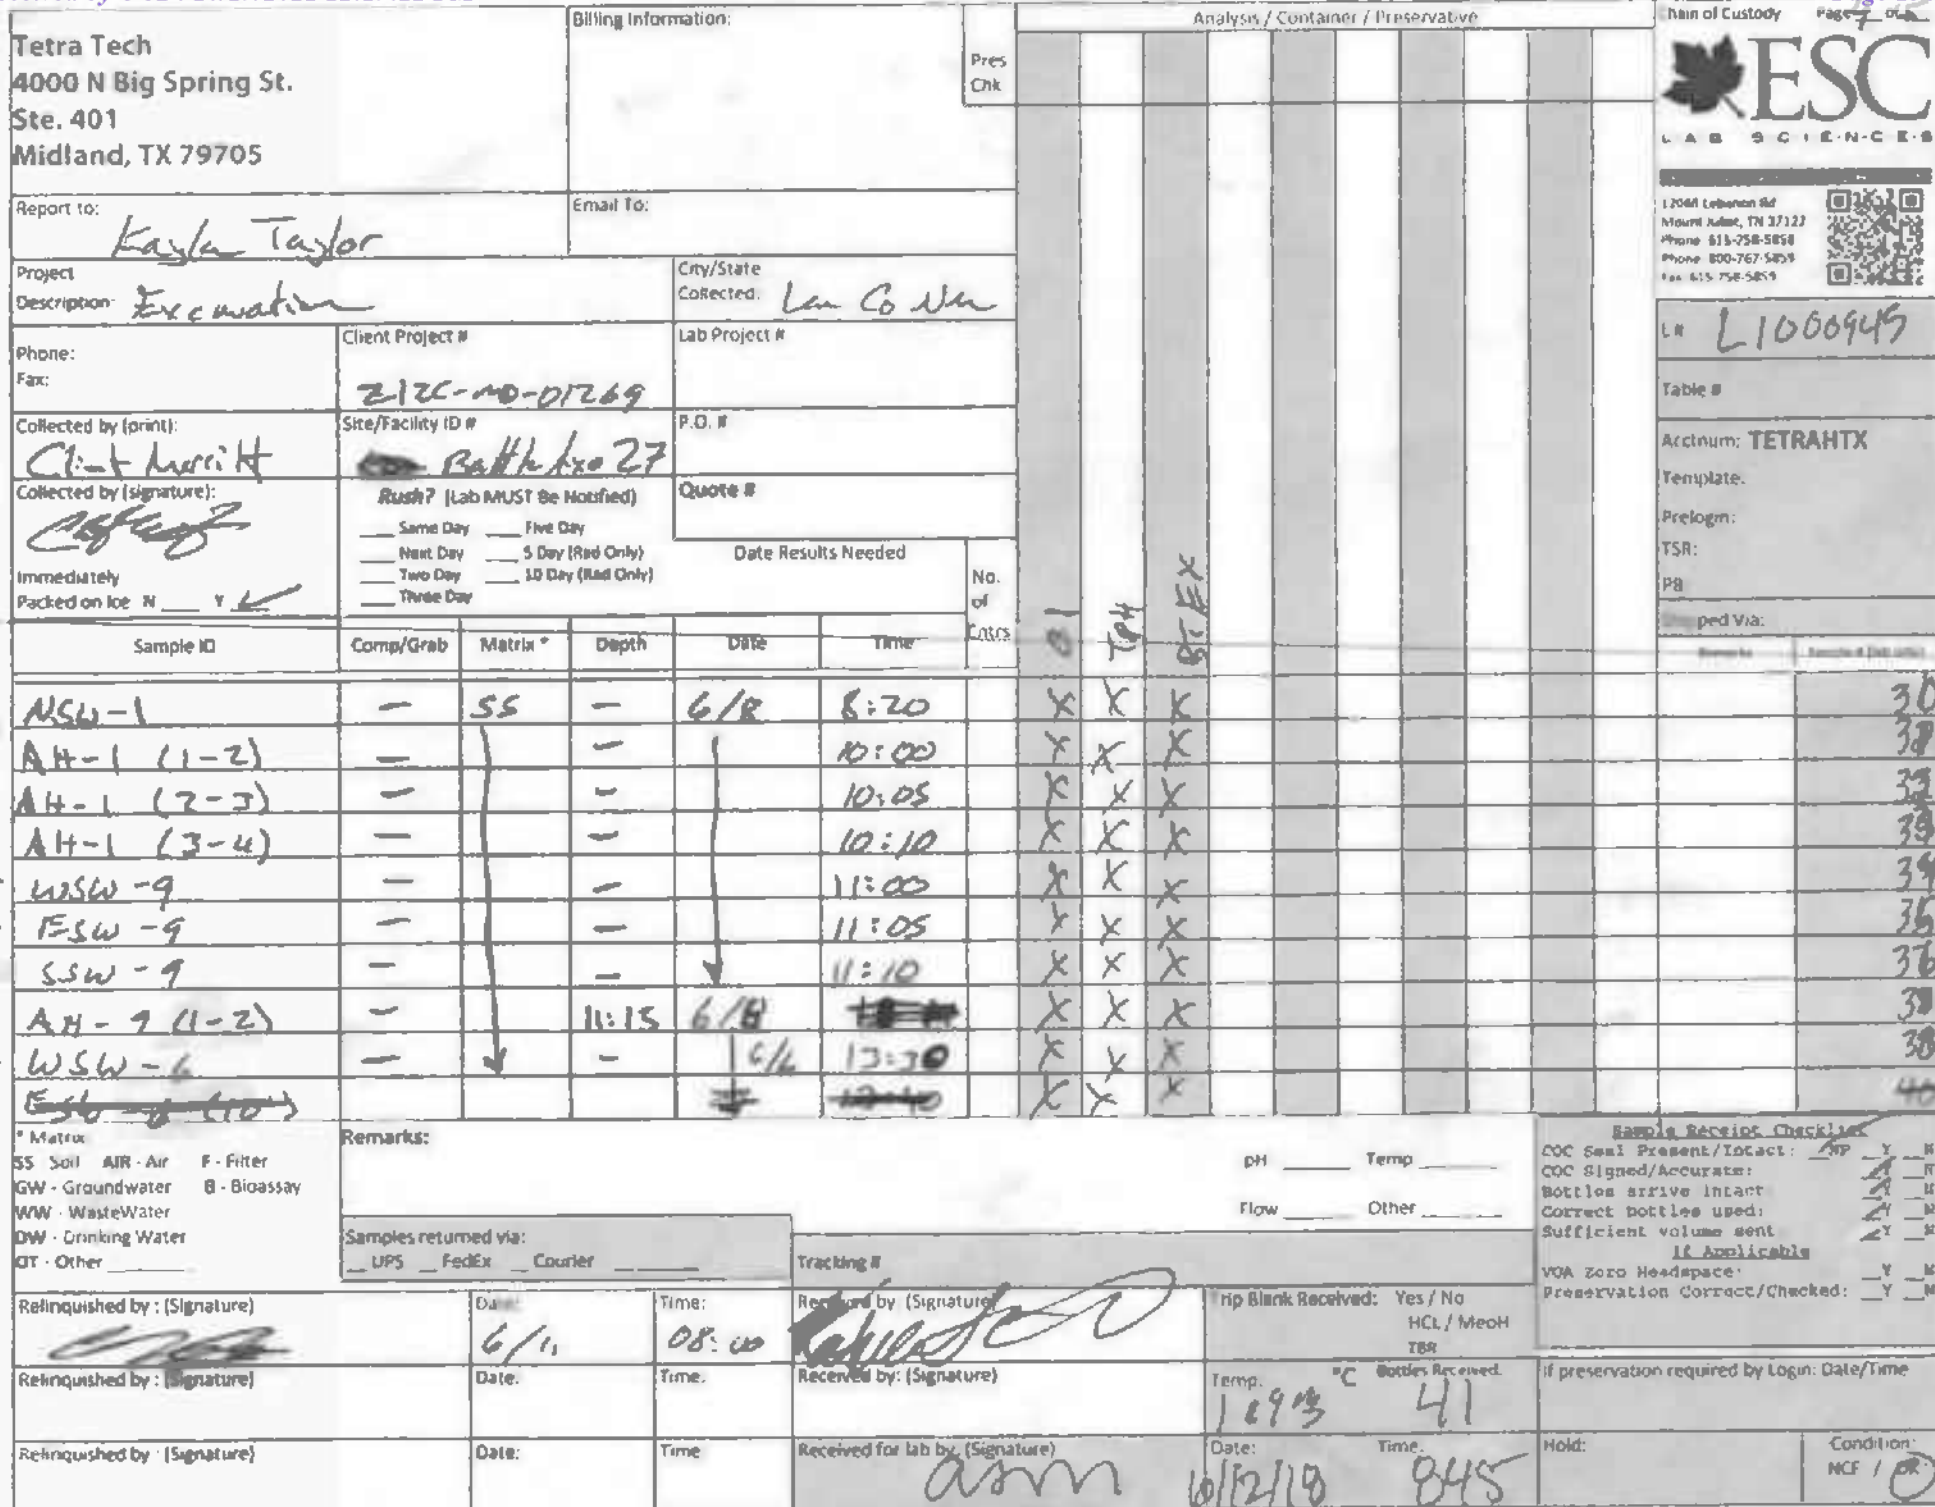 Tetra Tech
4000 N Big Spring St.
Ste. 401
Midland, TX 79705
Billing Information:
Pres
Chk
Analysis / Container / Preservative
Chain of Custody Page of
ESC
L·A·B S·C·I·E·N·C·E·S
12065 Lebanon Rd
Mount Juliet, TN 37122
Phone 615-758-5858
Phone 800-767-5859
Fax 615-758-5859
Report to:
Kayla Taylor
Email To:
Project
Description: Excavation
City/State
Collected: Lea Co NM
L # L1000945
Phone:
Fax:
Client Project #
212C-MD-01269
Lab Project #
Table #
Collected by (print):
Clint Merritt
Site/Facility ID #
Battle Axe 27
P.O. #
Acctnum: TETRAHTX
Template:
Prelogin:
TSR:
PB
Shipped Via:
Collected by (signature):
Immediately
Packed on Ice N ___ Y ✓
Rush? (Lab MUST Be Notified)
___ Same Day ___ Five Day
___ Next Day ___ 5 Day (Rad Only)
___ Two Day ___ 10 Day (Rad Only)
___ Three Day
Quote #
Date Results Needed
No.
of
Cntrs
TPH
BTEX
Sample ID Comp/Grab Matrix * Depth Date Time Remarks
NSW-1 — SS — 6/8 8:20 X X X
AH-1 (1-2) — — 10:00 X X X
AH-1 (2-3) — — 10:05 X X X
AH-1 (3-4) — — 10:10 X X X
WSW-9 — — 11:00 X X X
ESW-9 — — 11:05 X X X
SSW-9 — — 11:10 X X X 36
AH-9 (1-2) — 11:15 6/8 X X X
WSW-6 — — 6/6 13:30 X X X
X X X 40
* Matrix
SS Soil AIR - Air F - Filter
GW - Groundwater B - Bioassay
WW - WasteWater
DW - Drinking Water
OT - Other ______
Remarks:
pH ______ Temp ______
Flow ______ Other ______
Samples returned via:
__ UPS __ FedEx __ Courier ______
Tracking #
Sample Receipt Checklist
COC Seal Present/Intact: __NP __Y __N
COC Signed/Accurate: __Y __N
Bottles arrive intact: __Y __N
Correct bottles used: __Y __N
Sufficient volume sent: __Y __N
If Applicable
VOA Zero Headspace: __Y __N
Preservation Correct/Checked: __Y __N
Relinquished by : (Signature)
Date:
6/11
Time:
08:00
Received by: (Signature)
Trip Blank Received: Yes / No
HCL / MeoH
TBR
Relinquished by : (Signature)
Date:
Time:
Received by: (Signature)
Temp: °C Bottles Received:
41
If preservation required by Login: Date/Time
Relinquished by : (Signature)
Date:
Time
Received for lab by: (Signature)
Date: Time:
6/12/18 845
Hold:
Condition:
NCF / OK